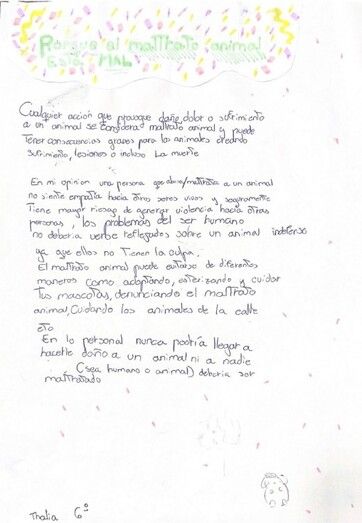 Porque el maltrato animal
Está MAL
Cualquier acción que provoque daño, dolor o sufrimiento
a un animal se considera maltrato animal y puede
Tener consecuencias graves para los animales creando
sufrimiento, lesiones o incluso La muerte
En mi opinion una persona que abusa/maltrata a un animal
no siente empatía hacia otros seres vivos y seguramente
Tiene mayor riesgo de generar violencia hacia otras
personas, los problemas del ser humano
no deberia verse reflejados sobre un animal indefenso
ya que ellos no Tienen la culpa.
El maltrato animal puede evitarse de diferentes
maneras como adoptando, esterilizando y cuidar
Tus mascotas, denunciando el maltrato
animal, Cuidando los animales de la calle
etc
En lo personal nunca podria llegar a
hacerle daño a un animal ni a nadie
(sea humano o animal) deberia ser
maltratado
Thalia 6º